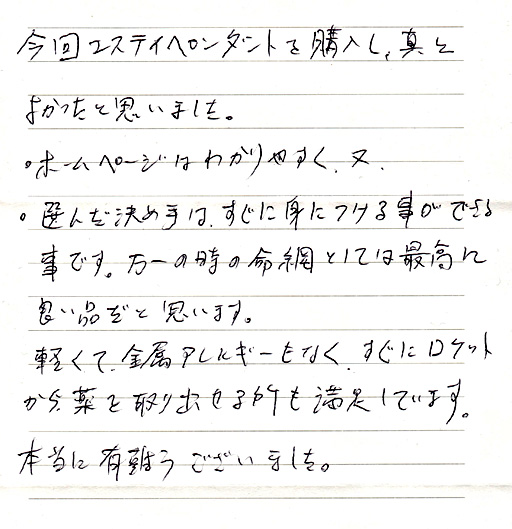 今回エステイペンダントを購入し、真と
よかったと思いました。
・ホームページはわかりやすく、又、
・選んだ決め手は、すぐに身につける事ができる
事です。万一の時の命綱としては最高に
良い品だと思います。
軽くて、金属アレルギーもなく、すぐにロケット
から薬を取り出せる所も満足しています。
本当に有難うございました。